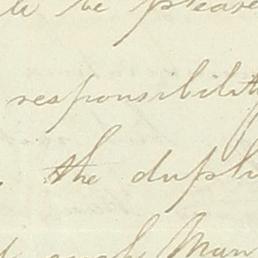 to be please
responsibility
the dupli
such Man